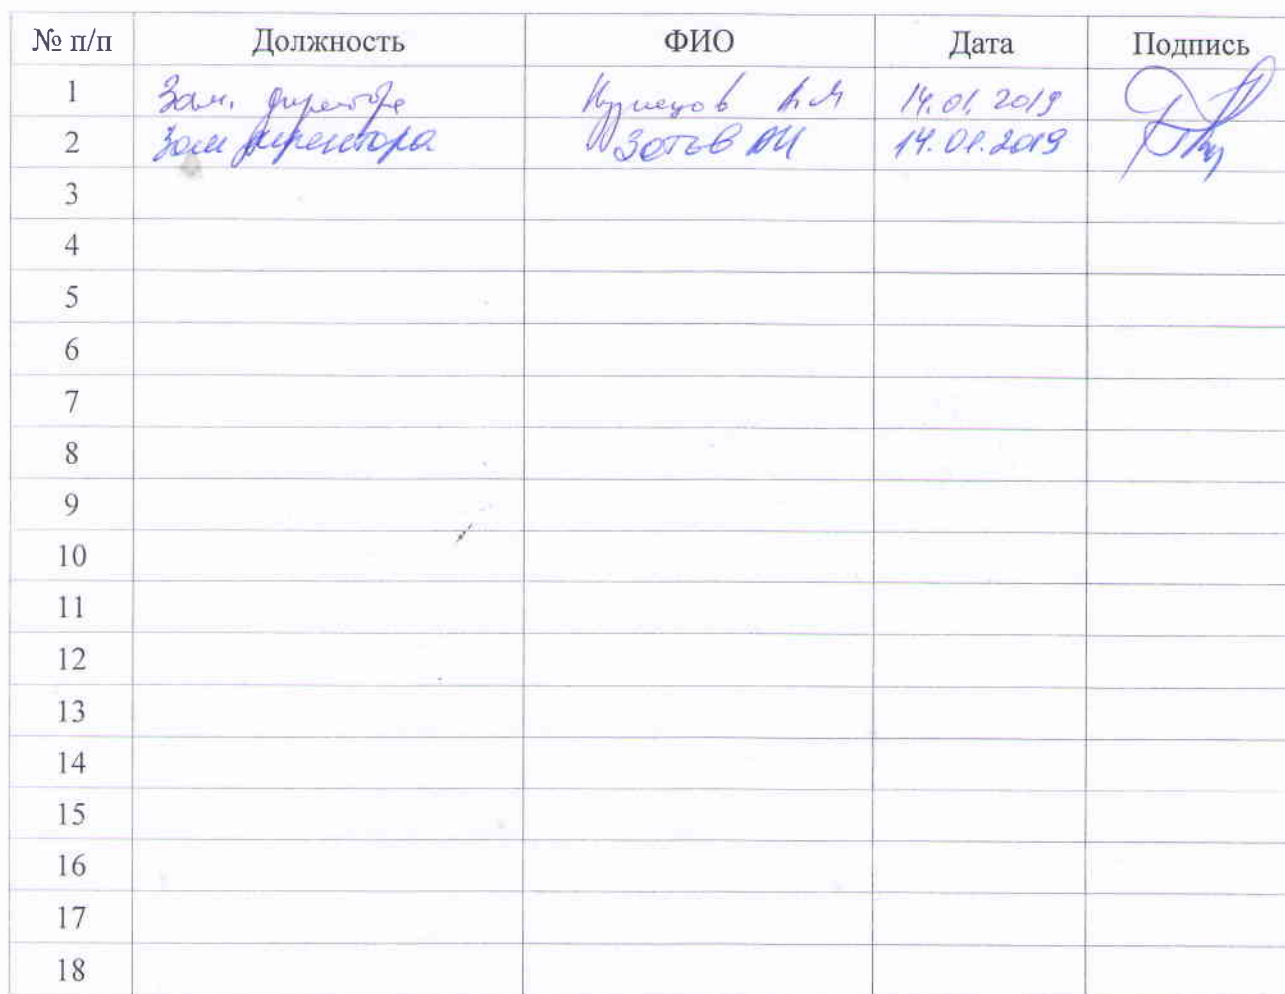 № п/п Должность ФИО Дата Подпись
1 Зам. директора Кузнецов А.М 14.01.2019
2 Зам директора Зотов АИ 14.01.2019
3
4
5
6
7
8
9
10
11
12
13
14
15
16
17
18